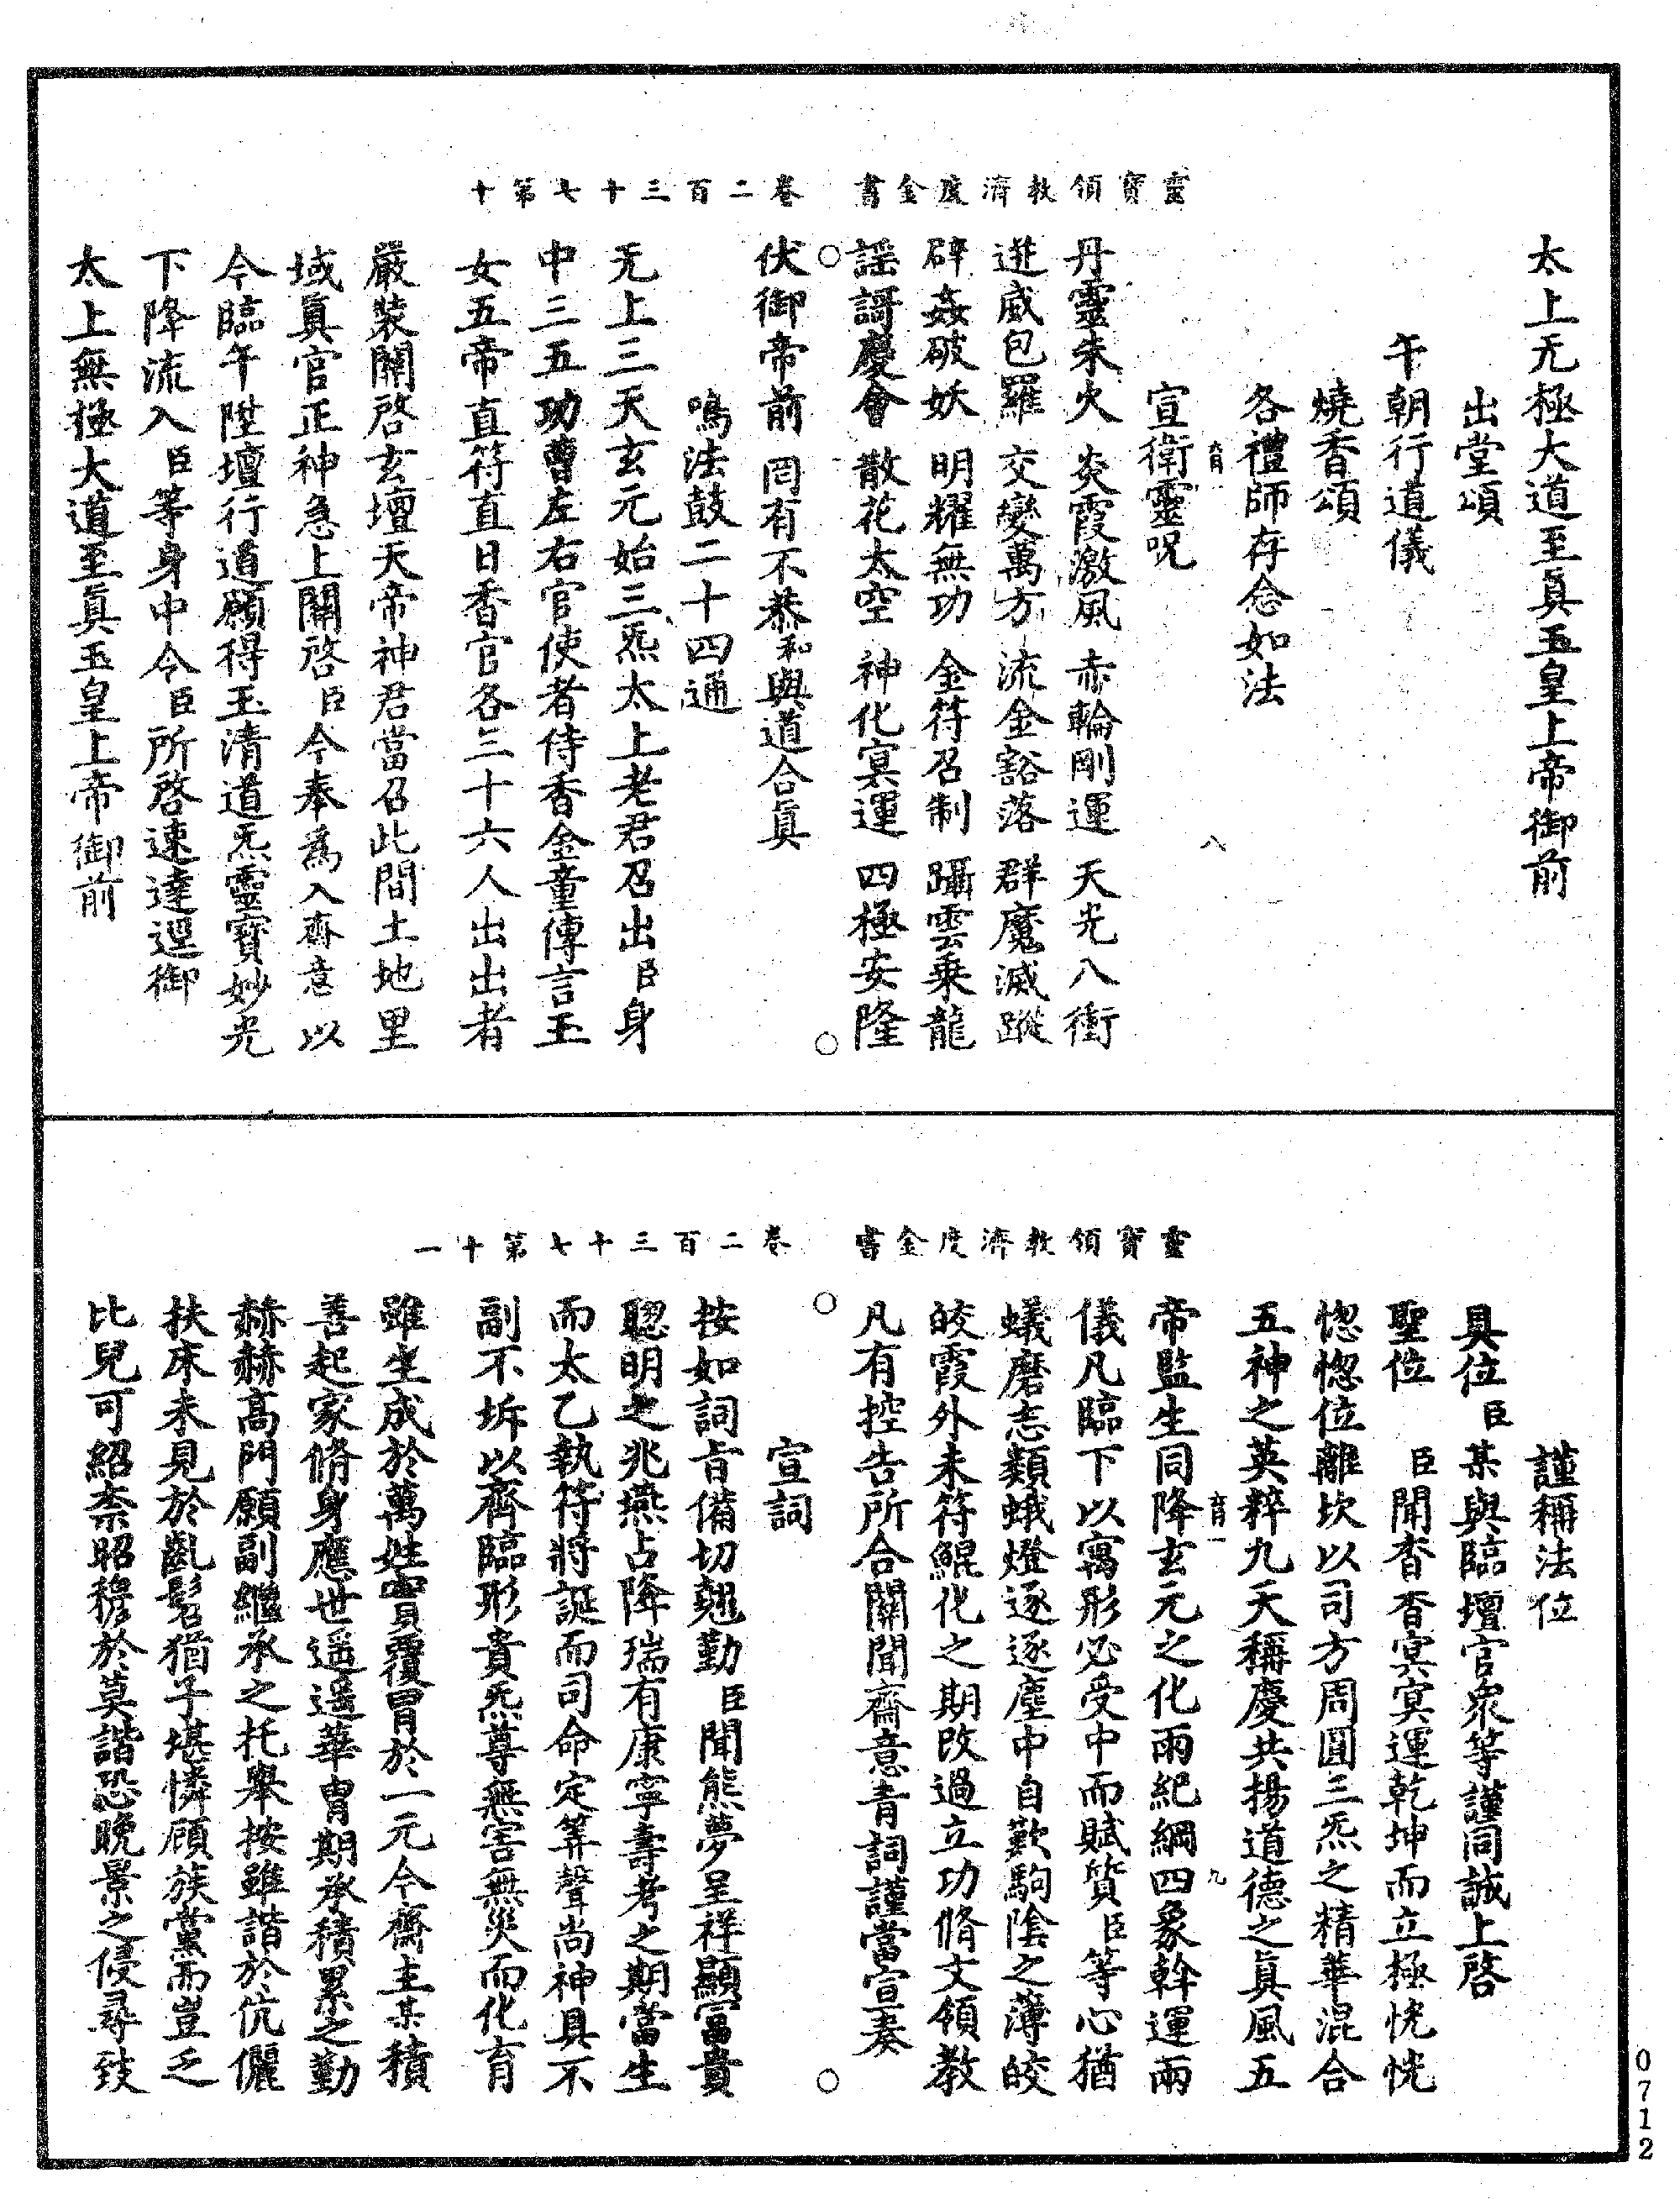 太上无極大道至眞玉皇上帝御前
出堂頌
午朝行道儀
燒香頌
各禮師存念如法
八
宣衛靈呪
丹靈朱火 炎霞激風 赤輪剛運 天光八衝
迸威包羅 交變萬方 流金豁落 群魔滅蹤
辟姦破妖 明耀無功 金符召制 躡雲乘龍
謡謌慶會 散花太空 神化冥運 四極安隆
靈寶領教濟度金書 卷二百三十七第十
伏御帝前 罔有不恭 和與道合眞
鳴法鼓二十四通
无上三天玄元始三炁太上老君召出臣身
中三五功曹左右官使者侍香金童傳言玉
女五帝直符直日香官各三十六人出出者
嚴裝關啓玄壇天帝神君當召此間土地里
域眞官正神急上關啓臣今奉爲入齋意以
今臨午陞壇行道願得玉清道炁靈寶妙光
下降流入臣等身中令臣所啓速達逕御
太上無極大道至眞玉皇上帝御前
謹稱法位
具位臣某與臨壇官衆等謹同誠上啓
聖位 臣聞杳杳冥冥運乾坤而立極恍恍
惚惚位離坎以司方周圓三炁之精華混合
五神之英粹九天稱慶共揚道德之眞風五
九
帝監生同降玄元之化雨紀綱四象幹運兩
儀凡臨下以寓形必受中而賦質臣等心猶
蟻磨志類蛾燈逐逐塵中自歎駒陰之薄皎
皎霞外未符鯤化之期改過立功脩文領教
凡有控告所合關聞齋意青詞謹當宣奏
靈寶領教濟度金書 卷二百三十七第十一
宣詞
按如詞旨備切翹勤臣聞熊夢呈祥顯富貴
聰明之兆燕占降瑞有康寧壽考之期當生
而太乙執符將誕而司命定筭聲尚神具不
副不坼以齊臨形貴炁尊無害無災而化育
雖生成於萬姓實覆冒於一元今齋主某積
善起家脩身應世遥遥華胄期承積累之勤
赫赫高門願副繼承之托舉按雖諧於伉儷
扶床未見於齓髫猶子堪憐顧族黨而豈乏
比兒可紹柰昭穆於莫諧恐晚景之侵尋致
0712